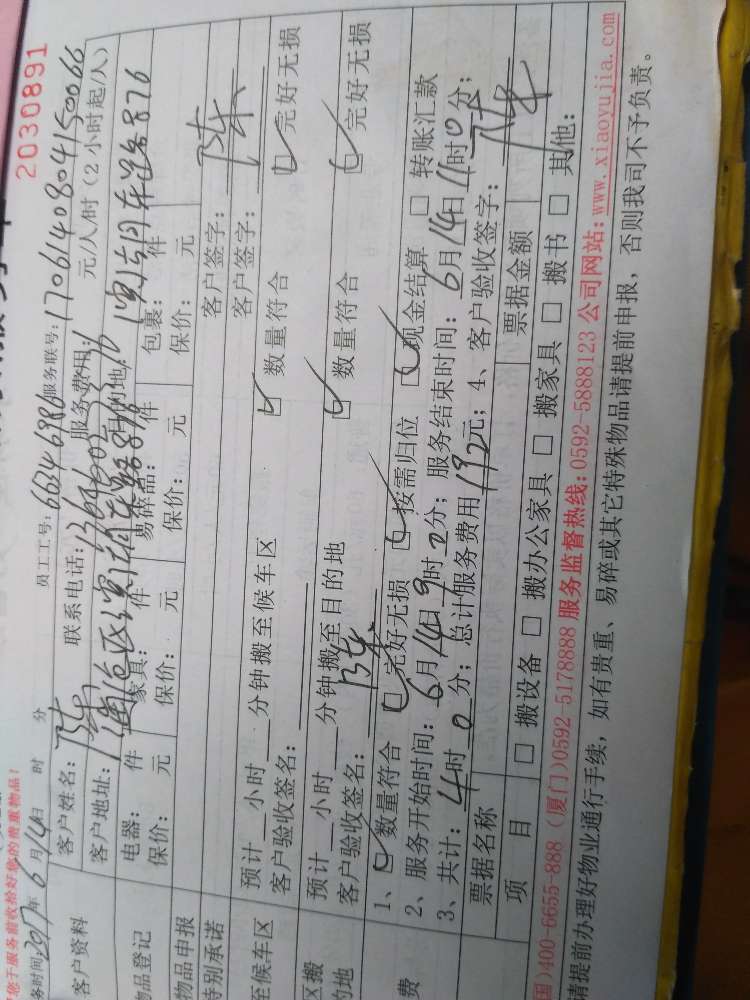 2030891
您于服务前收拾好您的贵重物品!
务时间: 2017年6月14日 时 分 员工工号: 66346986 服务联号: 1706140804150066
客户资料 客户姓名: 陈 联系电话: 服务费用: 元/人/时(2小时起/人)
客户地址:
物品登记 电器: 件 家具: 件 易碎品: 件 包裹: 件
物品申报 保价: 元 保价: 元 保价: 元 保价: 元
特别承诺 客户签字: 陈
至候车区 预计 小时 分钟搬至候车区 数量符合 完好无损 客户签字:
客户验收签名:
区搬 预计 小时 分钟搬至目的地 数量符合 完好无损
的地 客户验收签名: 陈
费 1、数量符合 完好无损 按需归位 现金结算 转账汇款
2、服务开始时间: 6月14日9时0分; 服务结束时间: 6月14日11时0分;
3、共计: 4时0分; 总计服务费用192元; 4、客户验收签字: 陈
票据名称 票据金额
项 目 搬设备 搬办公家具 搬家具 搬书 其他:
国)400-6655-888 (厦门)0592-5178888 服务监督热线: 0592-5888123 公司网站: www.xiaoyujia.com
请提前办理好物业通行手续, 如有贵重、易碎或其它特殊物品请提前申报, 否则我司不予负责。